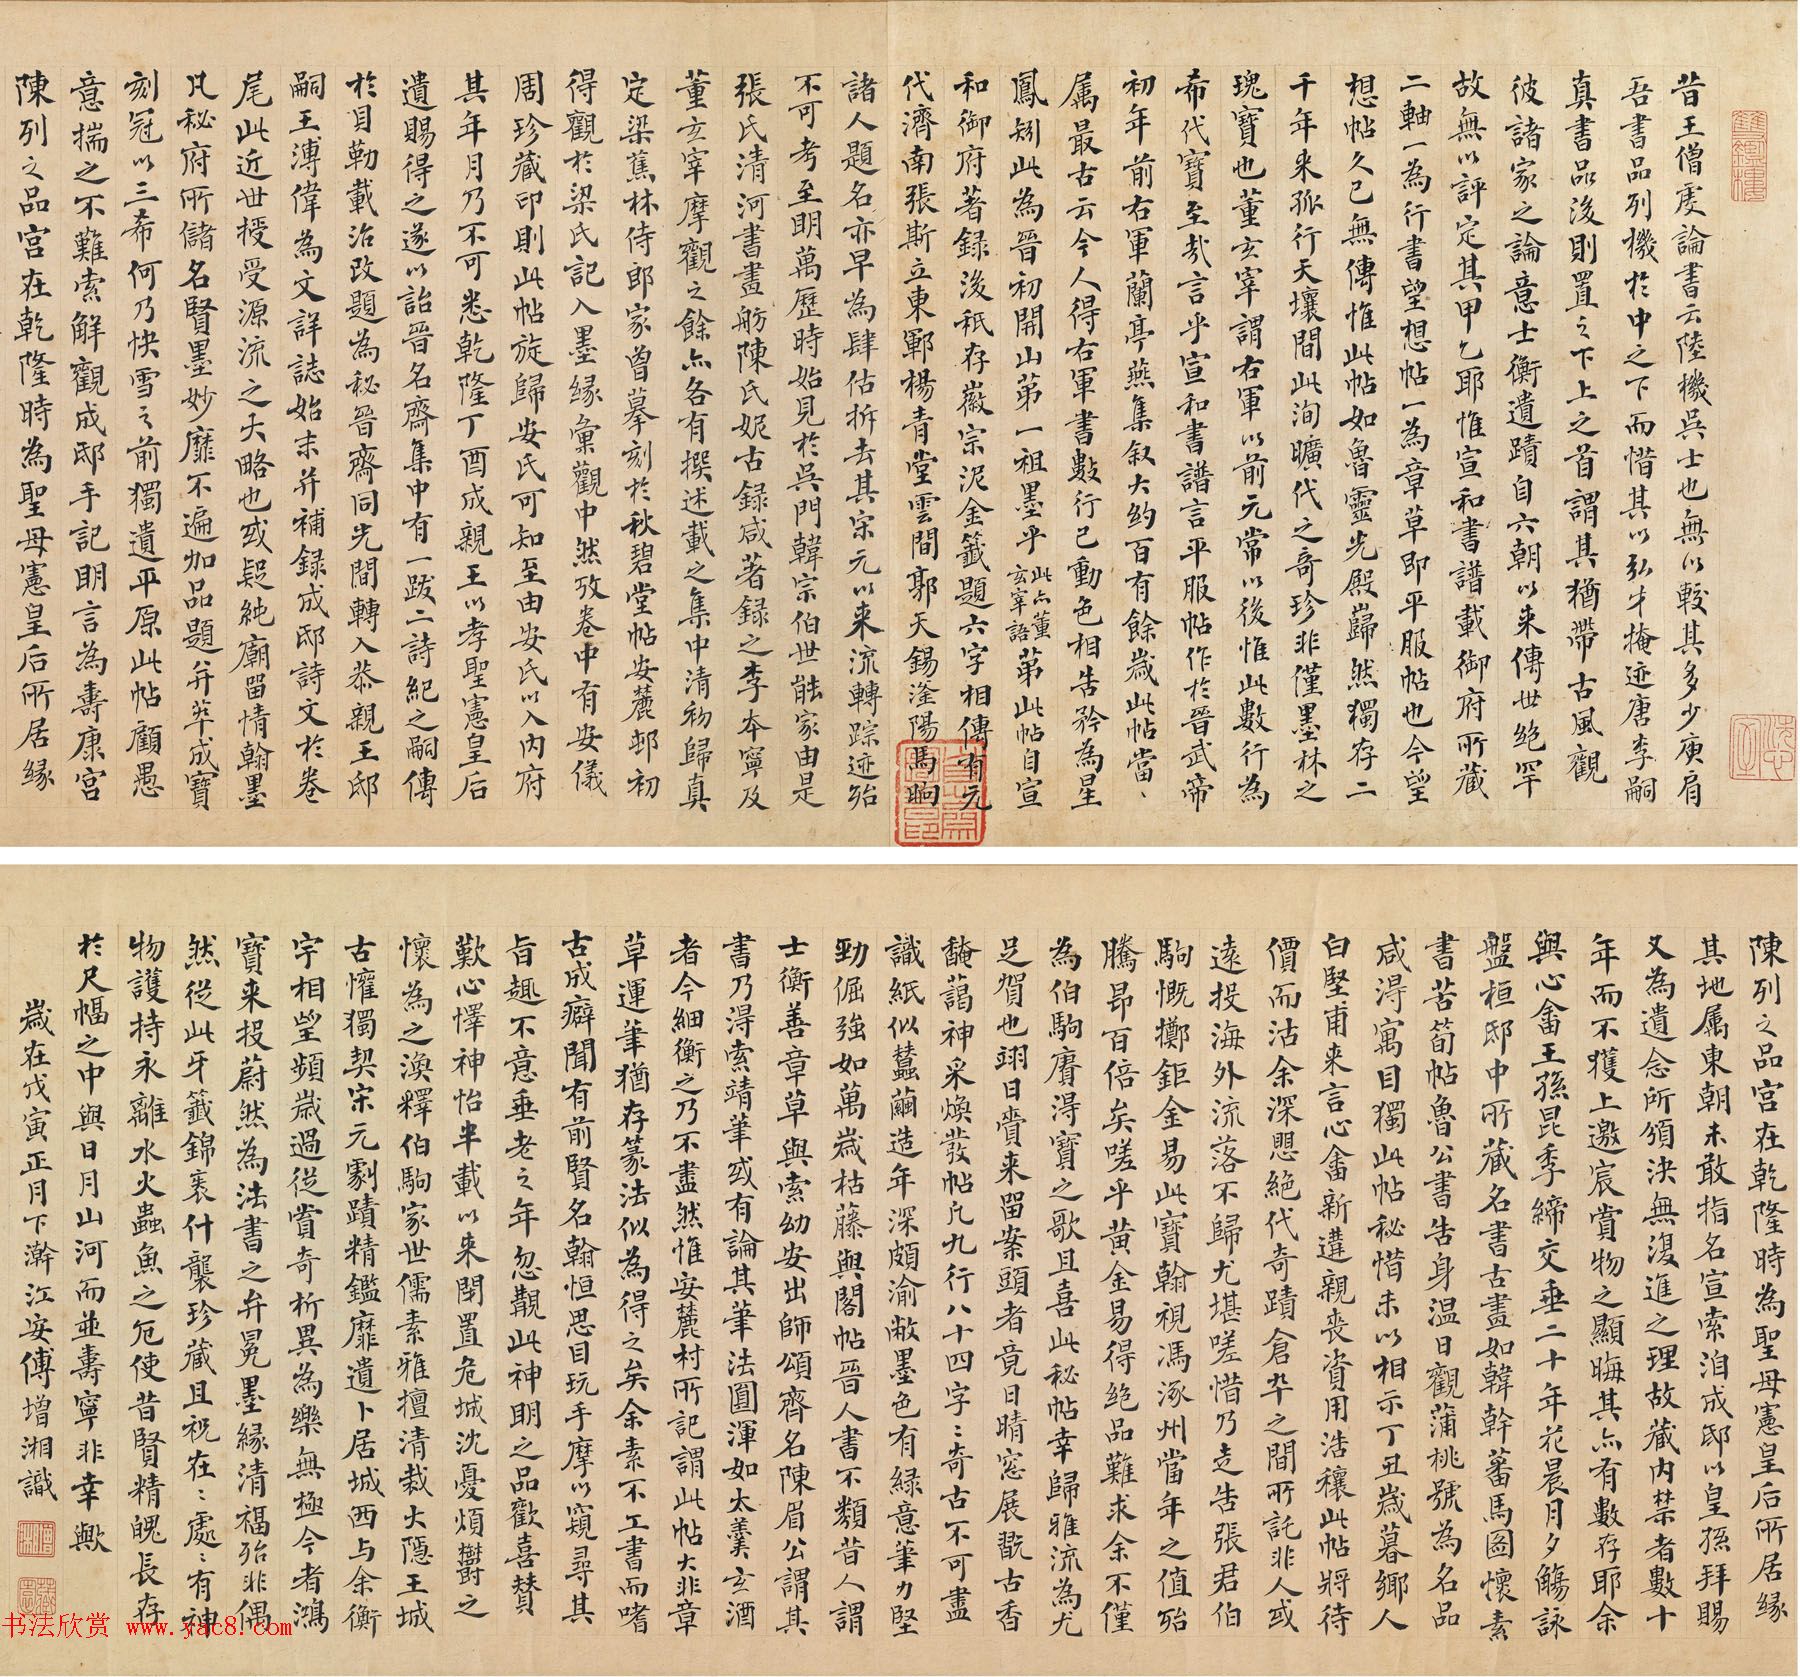 昔王僧虔論書云陸機吳士也無以較其多少庾肩
吾書品列機於中之下而惜其以弘才掩迹唐李嗣
真書品後則置之下上之首謂其猶帶古風觀
彼諸家之論意士衡遺蹟自六朝以来傳世絕罕
故無以評定其甲乙耶惟宣和書譜載御府所藏
二軸一為行書望想帖一為章草即平服帖也今望
想帖久已無傳惟此帖如魯靈光殿巋然獨存二
千年来孤行天壤間此洵曠代之奇珍非僅墨林之
瑰寶也董玄宰謂右軍以前元常以後惟此數行為
希代寶至哉言乎宣和書譜言平服帖作於晉武帝
初年前右軍蘭亭燕集叙大約百有餘歲此帖當〻
属最古云今人得右軍書數行已動色相告矜為星
鳳矧此為晉初開山第一祖墨乎此亦董玄宰語第此帖自宣
和御府著録後秖存徽宗泥金籤題六字相傳有元
代濟南張斯立東鄆楊青堂雲間郭天錫滏陽馬晌
諸人題名亦早為肆估拆去其宋元以来流轉踪迹殆
不可考至明萬歷時始見於吳門韓宗伯世能家由是
張氏清河書畫舫陳氏妮古録咸著録之李本寧及
董玄宰摩觀之餘亦各有撰述載之集中清初歸真
定梁蕉林侍郎家曾摹刻於秋碧堂帖安麓邨初
得觀於梁氏記入墨緣彙觀中然攷卷中有安儀
周珍藏印則此帖旋歸安氏可知至由安氏以入內府
其年月乃不可悉乾隆丁酉成親王以孝聖憲皇后
遺賜得之遂以詒晉名齋集中有一跋二詩紀之嗣傳
於貝勒載治改題為秘晉齋同光間轉入恭親王邸
嗣王溥偉為文詳誌始末并補録成邸詩文於卷
尾此近世授受源流之大略也或疑純廟留情翰墨
凡秘府所儲名賢墨妙靡不遍加品題并萃成寶
刻冠以三希何乃快雪之前獨遺平原此帖顧愚
意揣之不難索解觀成邸手記明言為壽康宮
陳列之品宮在乾隆時為聖母憲皇后所居緣
陳列之品宮在乾隆時為聖母憲皇后所居緣
其地属東朝未敢指名宣索洎成邸以皇孫拜賜
又為遺念所頒決無復進之理故藏內禁者數十
年而不獲上邀宸賞物之顯晦其亦有數存耶余
與心畬王孫昆季締交垂二十年花晨月夕觴詠
盤桓邸中所藏名書古畫如韓幹蕃馬圖懷素
書苦筍帖魯公書告身溫日觀蒲桃號為名品
咸得寓目獨此帖秘惜未以相示丁丑歲暮鄉人
白堅甫来言心畬新遘親喪資用浩穰此帖將待
價而沽余深思絕代奇蹟倉卒之間所託非人或
遠投海外流落不歸尤堪嗟惜乃走告張君伯
駒慨擲鉅金易此寶翰視馮涿州當年之值殆
騰昂百倍矣嗟乎黃金易得絕品難求余不僅
為伯駒賡得寶之歌且喜此秘帖幸歸雅流為尤
足賀也翊日賷来留案頭者竟日晴窓展翫古香
馣藹神采煥發帖凡九行八十四字〻奇古不可盡
識紙似蠶繭造年深頗渝敝墨色有緑意筆力堅
勁倔強如萬歲枯藤與閣帖晉人書不類昔人謂
士衡善章草與索幼安出師頌齊名陳眉公謂其
書乃得索靖筆或有論其筆法圓渾如太羹玄酒
者今細衡之乃不盡然惟安麓村所記謂此帖大非章
草運筆猶存篆法似為得之矣余素不工書而嗜
古成癖聞有前賢名翰恒思目玩手摩以窺尋其
旨趣不意垂老之年忽覩此神明之品歡喜贊
歎心懌神怡半載以来閉置危城沈憂煩鬱之
懷為之渙釋伯駒家世儒素雅擅清裁大隱王城
古懽獨契宋元劇蹟精鑑靡遺卜居城西与余衡
宇相望頻歲過從賞奇析異為樂無極今者鴻
寶来投蔚然為法書之弁冕墨緣清福殆非偶
然從此牙籤錦裹什襲珍藏且祝在〻處〻有神
物護持永離水火蟲魚之厄使昔賢精魄長存
於尺幅之中與日月山河而並壽寧非幸歟
歲在戊寅正月下澣江安傅增湘識
书法欣赏 www.yac8.com